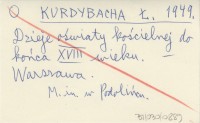 KURDYBACHA Ł. 1949.
Dzieje oświaty kościelnej do
końca XVIII wieku.
Warszawa.
M. in. w Podolińcu.